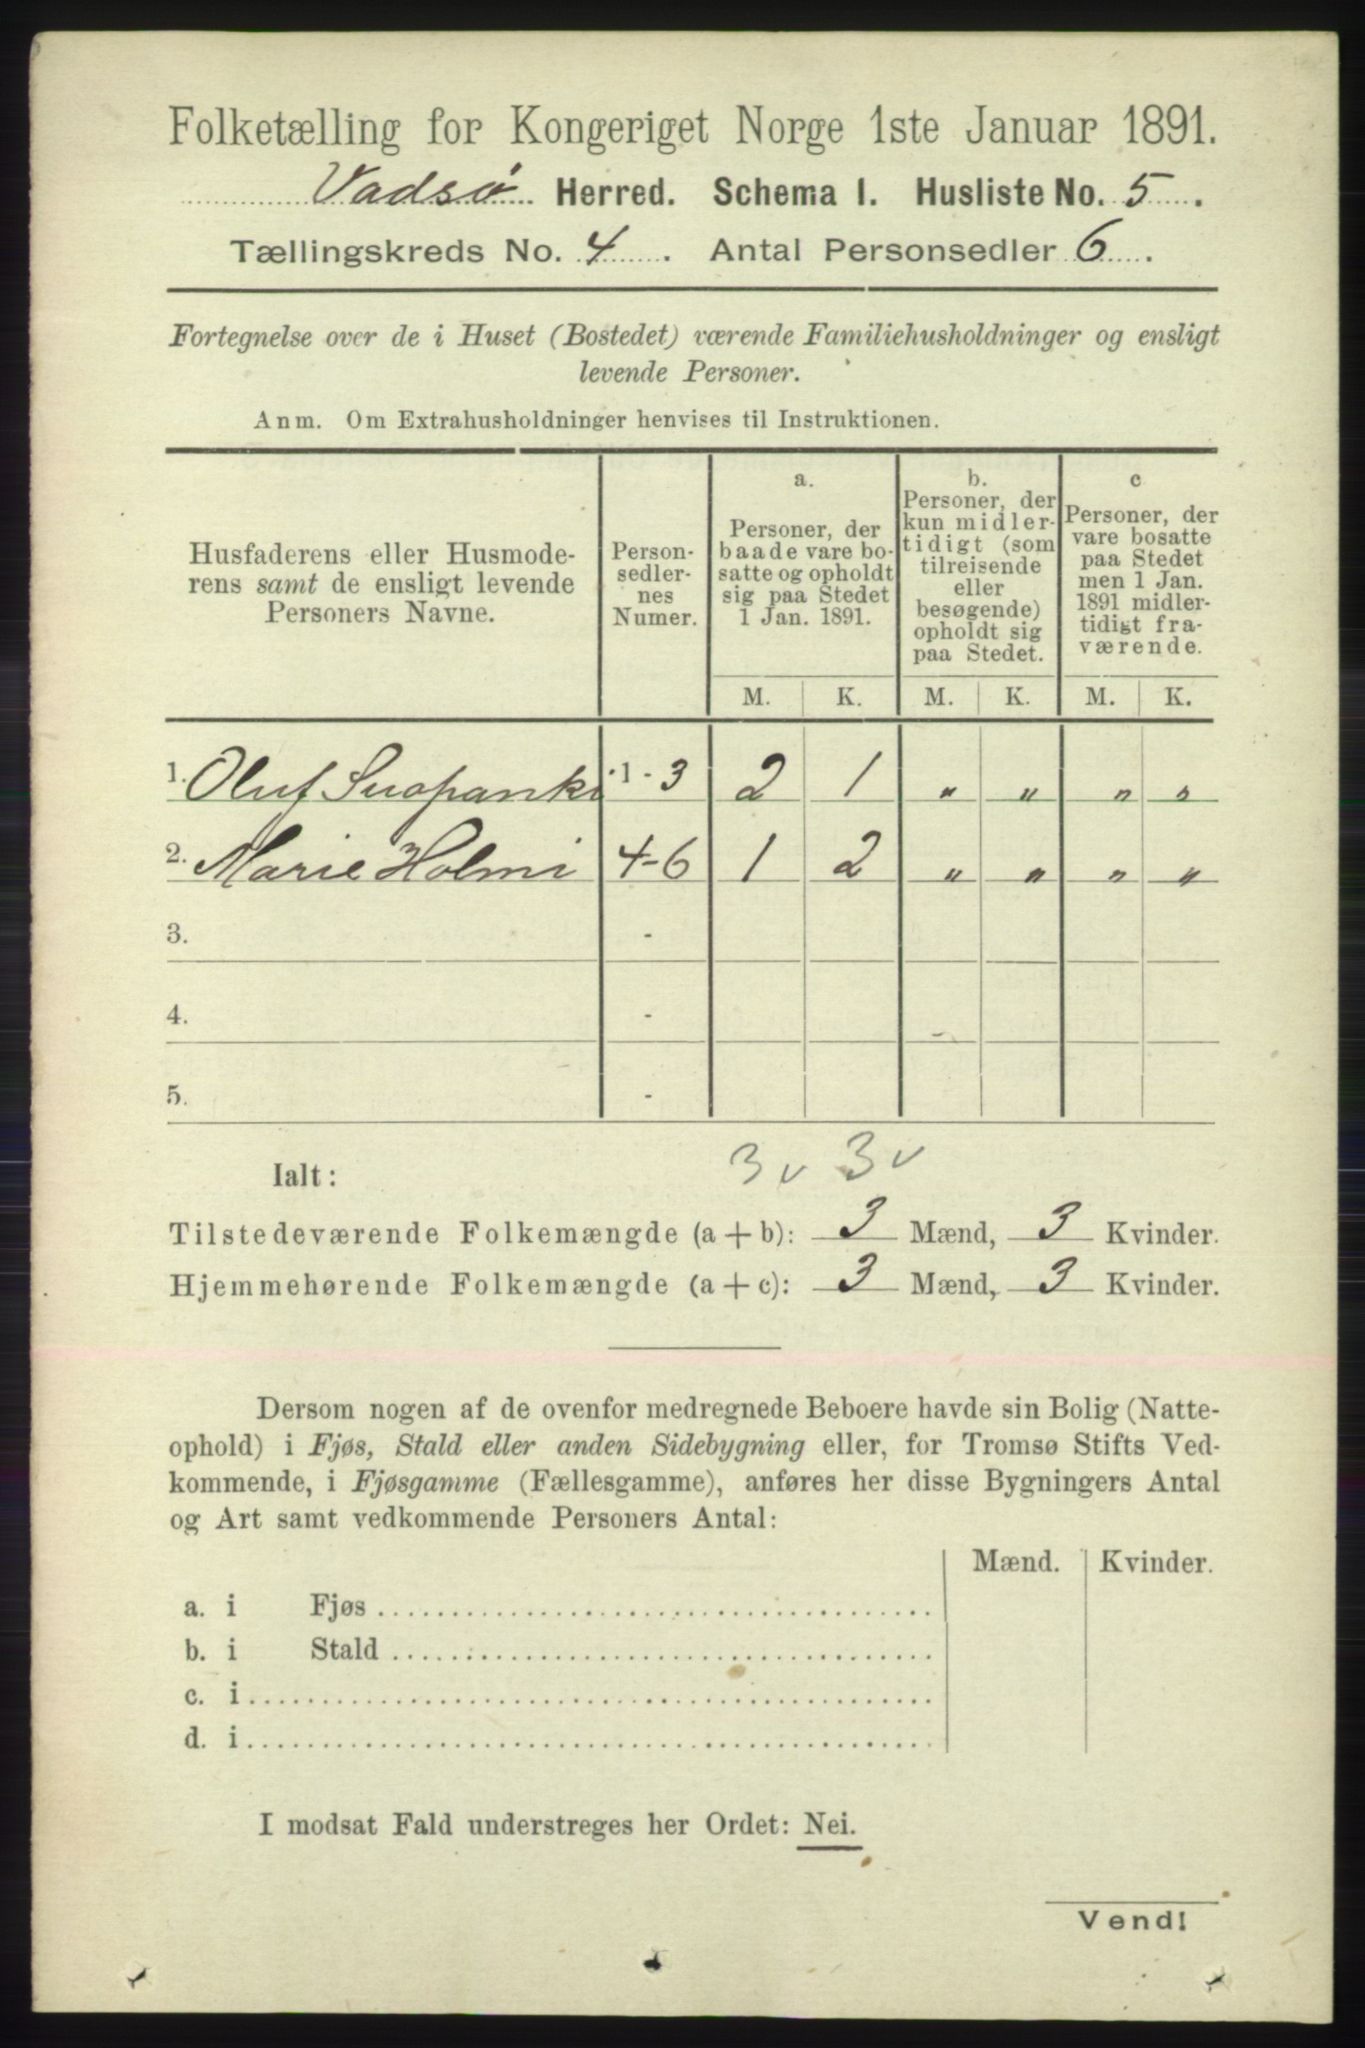 Folketælling for Kongeriget Norge 1ste Januar 1891.
Vadsø Herred. Schema I. Husliste No. 5.
Tællingskreds No. 4. Antal Personsedler 6.
Fortegnelse over de i Huset (Bostedet) værende Familiehusholdninger og ensligt
levende Personer.
Anm. Om Extrahusholdninger henvises til Instruktionen.
Husfaderens eller Husmode-
rens samt de ensligt levende
Personers Navne.
Person-
sedler-
nes
Numer.
a.
Personer, der
baade vare bo-
satte og opholdt
sig paa Stedet
1 Jan. 1891.
b.
Personer, der
kun midler-
tidigt (som
tilreisende
eller
besøgende)
opholdt sig
paa Stedet.
c
Personer, der
vare bosatte
paa Stedet
men 1 Jan.
1891 midler-
tidigt fra-
værende.
M. K. M. K. M. K.
1. Oluf Suopanki 1-3 2 1 " " " "
2. Marie Holmi 4-6 1 2 " " " "
3. -
4. - -
5. -
Ialt: 3 v 3 v
Tilstedeværende Folkemængde (a + b): 3 Mænd, 3 Kvinder.
Hjemmehørende Folkemængde (a + c): 3 Mænd, 3 Kvinder.
Dersom nogen af de ovenfor medregnede Beboere havde sin Bolig (Natte-
ophold) i Fjøs, Stald eller anden Sidebygning eller, for Tromsø Stifts Ved-
kommende, i Fjøsgamme (Fællesgamme), anføres her disse Bygningers Antal
og Art samt vedkommende Personers Antal:
Mænd. Kvinder.
a. i Fjøs
b. i Stald
c. i
d. i
I modsat Fald understreges her Ordet: Nei.
Vend!